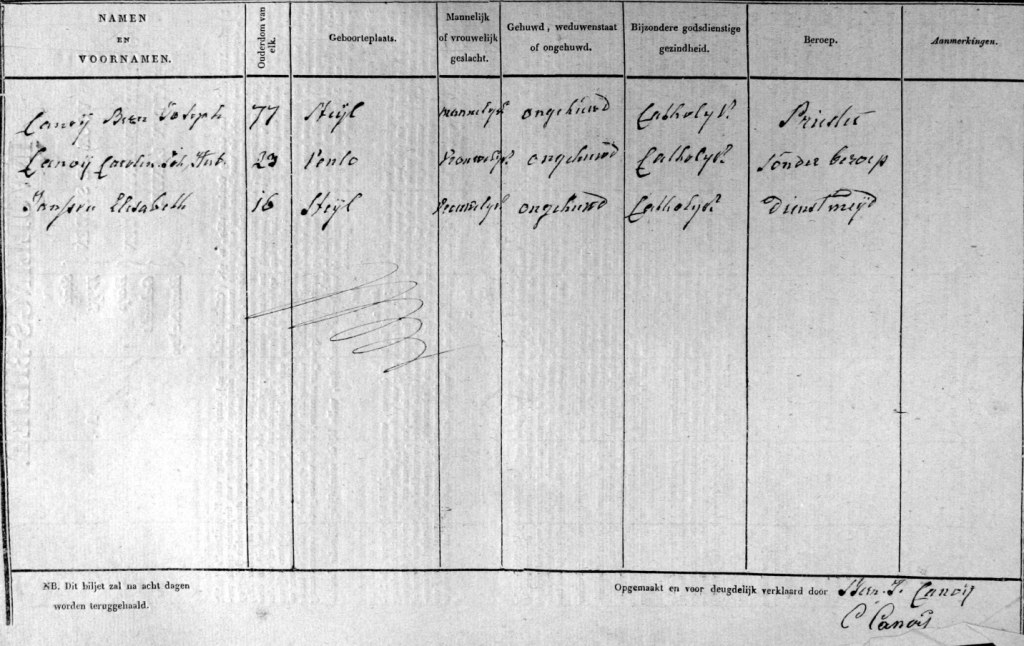 NAMEN
EN
VOORNAMEN.
Ouderdom van elk.
Geboorteplaats.
Mannelijk of vrouwelijk geslacht.
Gehuwd, weduwenstaat of ongehuwd.
Bijzondere godsdienstige gezindheid.
Beroep.
Aanmerkingen.
Canoÿ Bern Joseph 77 Steÿl mannelyk ongehuwd Catholyk Priester
Canoÿ Carolin Joh, Hub. 23 Venlo Vrouwelyk ongehuwd Catholyk sonder beroep
Janssen Elisabeth 16 Steÿl Vrouwelyk ongehuwd Catholyk dienstmeÿd
NB. Dit biljet zal na acht dagen
worden teruggehaald.
Opgemaakt en voor deugdelijk verklaard door Bern. J. Canoÿ
C Canoÿ